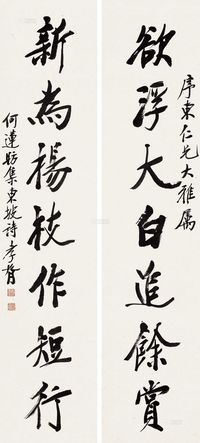 序東仁兄大雅屬
欲浮大白追餘賞
新為楊枝作短行
何連舫集東坡詩孝胥